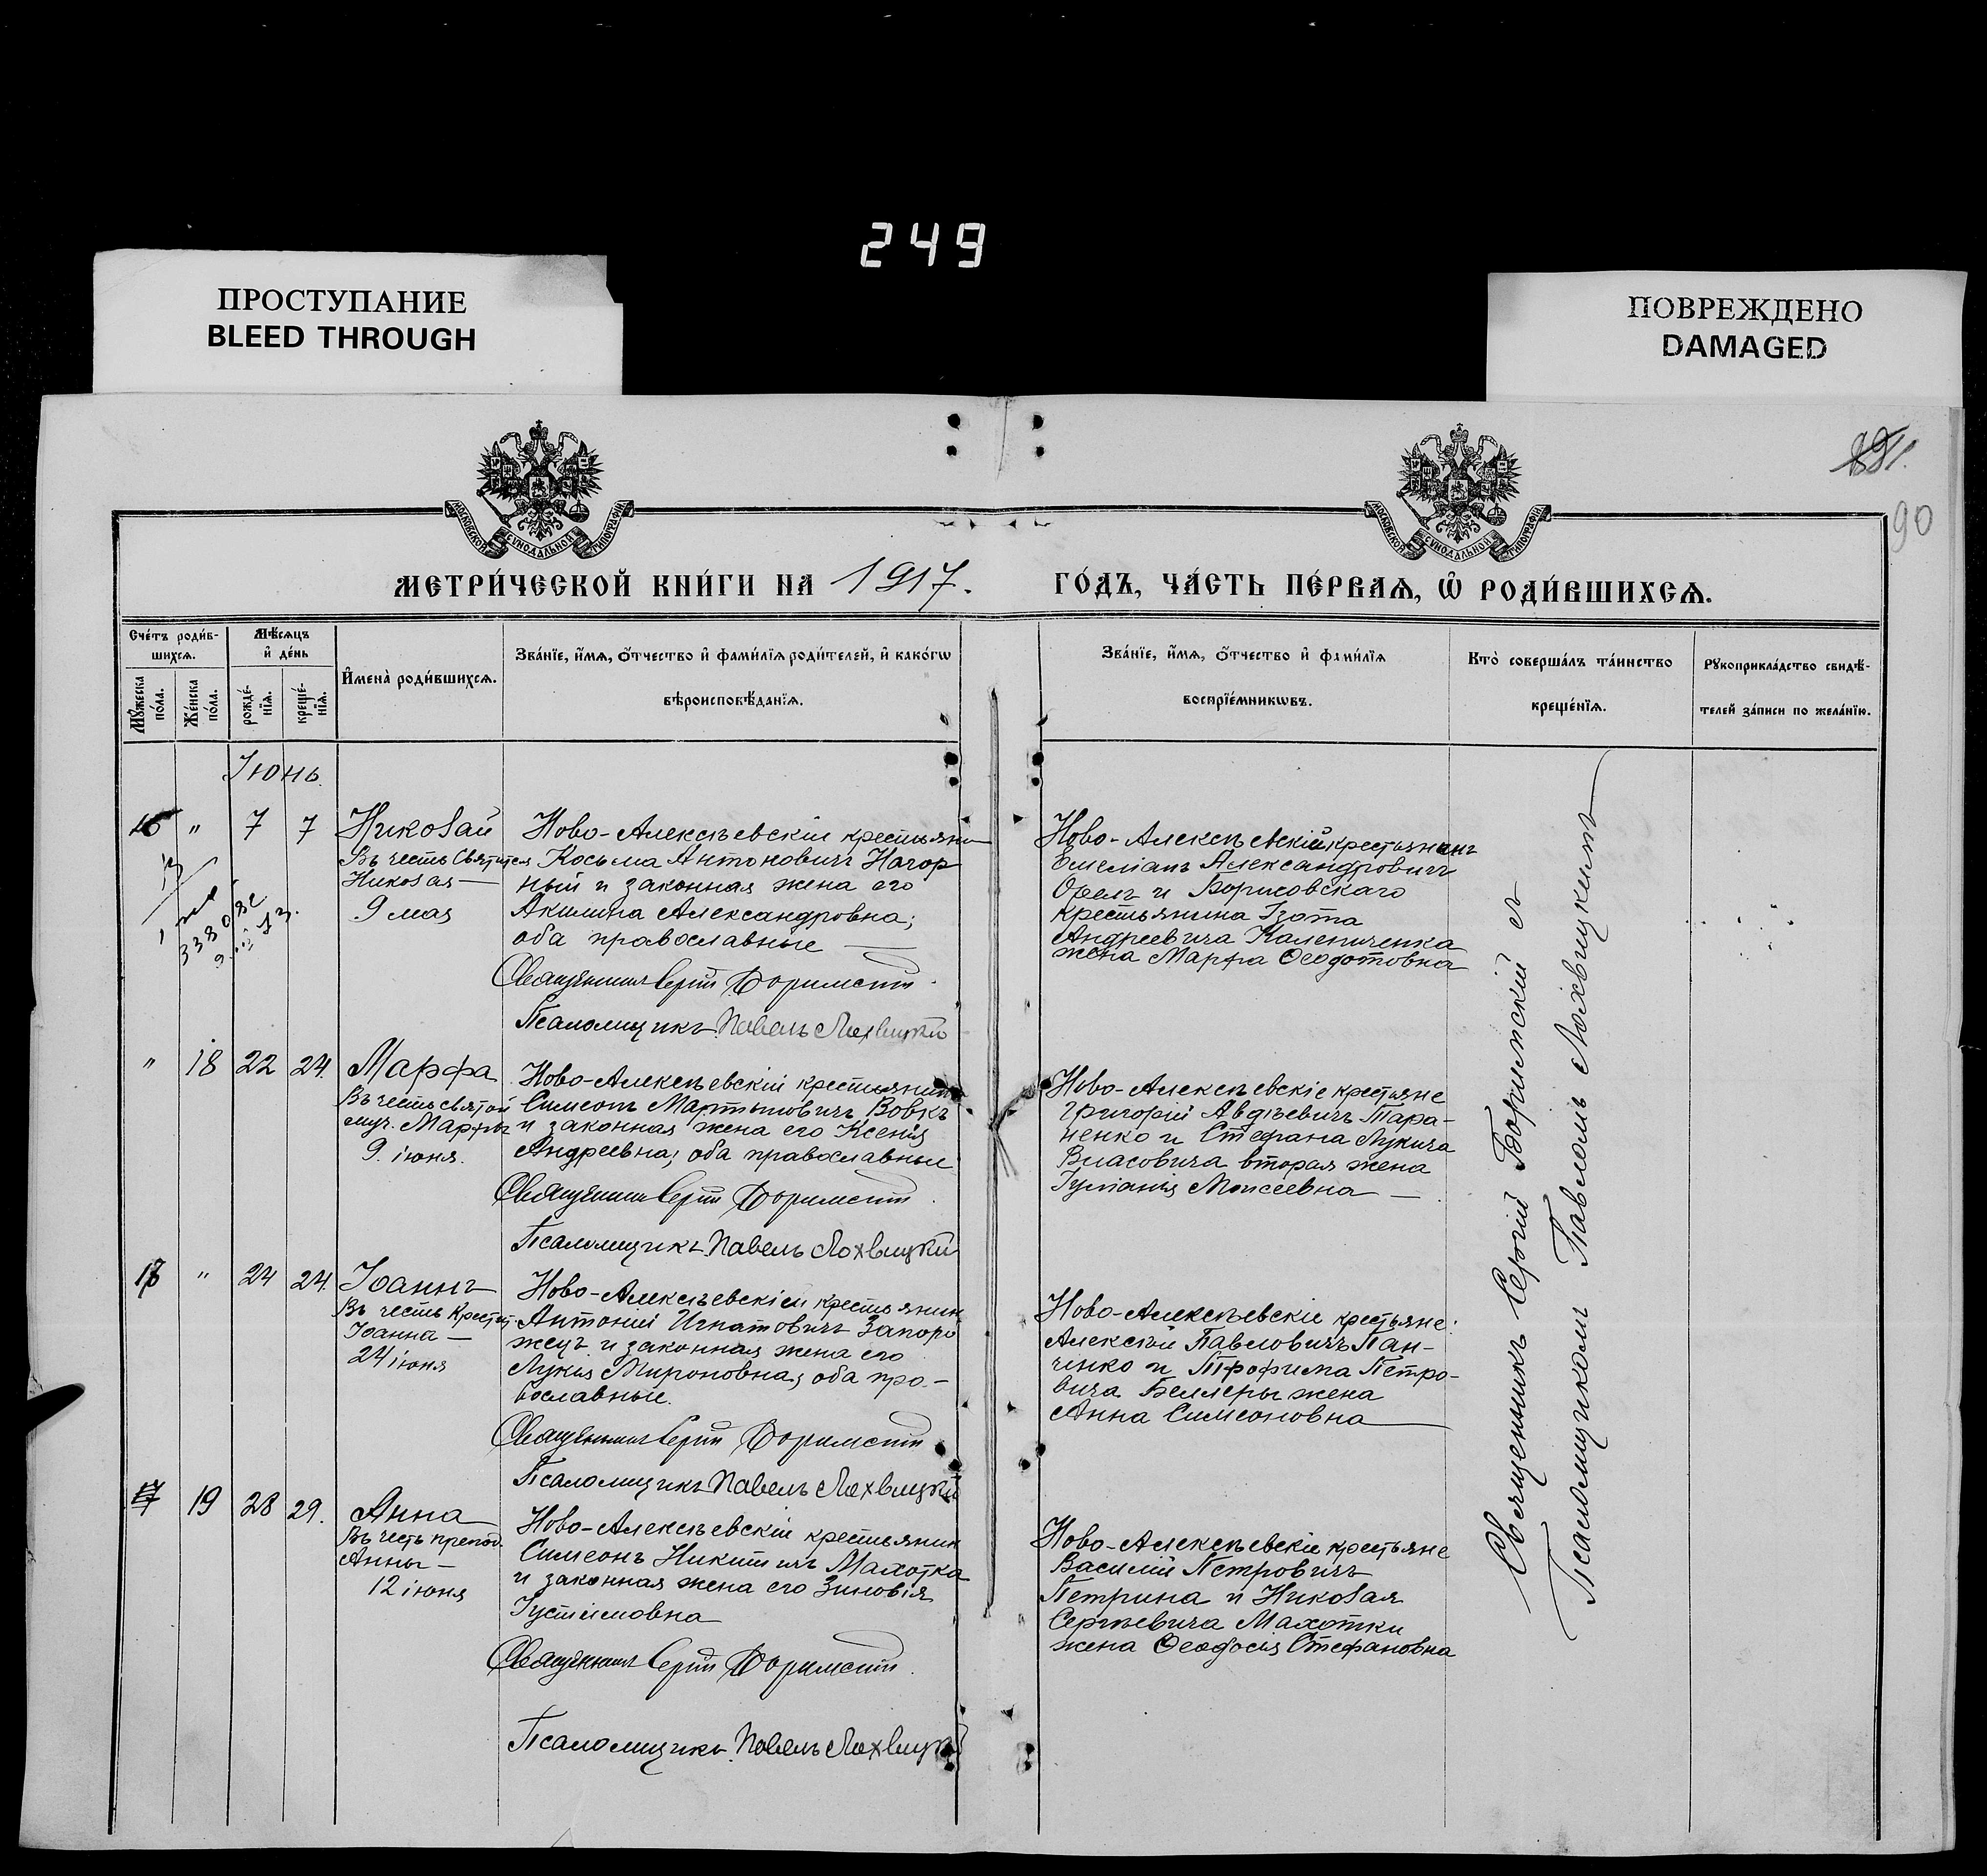 249
ПРОСТУПАНИЕ
BLEED THROUGH
ПОВРЕЖДЕНО
DAMAGED
90
МОСКОВСКОЙ СУНОДАЛЬНОЙ ТИПОГРАФІИ
МОСКОВСКОЙ СУНОДАЛЬНОЙ ТИПОГРАФІИ
МЕТРИ́ЧЕСКОЙ КНИ́ГИ НА 1917. ГО́ДЪ, ЧА́СТЬ ПЕ́РВАѦ, Ѡ҆ РОДИ́ВШИХСѦ.
Сче́тъ роди́в-
шихсѧ.
Мꙋ́жеска по́ла.
Же́нска по́ла.
Мѣ́сѧцъ
и҆ де́нь
рожде́-
нїѧ.
креще́-
нїѧ.
И҆мена̀ роди́вшихсѧ.
Зва́нїе, и҆́мѧ, ѻ҆́тчество и҆ фами́лїѧ роди́телей, и҆ како́гѡ
вѣроисповѣ́данїѧ.
Зва́нїе, и҆́мѧ, ѻ҆́тчество и҆ фами́лїѧ
воспрїе́мникѡвъ.
Кто̀ соверша́лъ та́инство
креще́нїѧ.
Рꙋкоприкла́дство свидѣ́-
телей за́писи по жела́нїю.
Іюнь.
" 7 7
Николай
Въ честь Святителя
Николая —
9 мая
Ново-Алексѣевскій крестьянин
Косьма Антоновичъ Нагор
ный и законная жена его
Акилина Александровна;
оба православные —
Священникъ Сергій Боримскій
Псаломщикъ Павелъ Лохвицкій
Ново-Алексѣевскій крестьянинъ
Емеліанъ Александровичъ
и Борисовскаго
крестьянина Изота
Андреевича Калениченка
жена Марфа Ѳеодотовна
" 18 22 24.
Марфа
Въ честь святой
муч. Марфы
9. іюня.
Ново-Алексѣевскій крестьянинъ
Симеонъ Мартыновичъ Вовкъ
и законная жена его Ксенія
Андреевна; оба православные
Священникъ Сергій Боримскій
Псаломщикъ Павелъ Лохвицкій
Ново-Алексѣевскіе крестьяне
Григорій Авдѣевичъ Тара-
ненко и Стефана Лукича
Власовича вторая жена
Іуліанія Моисеевна —
" 24 24.
Іоаннъ
Въ честь Крестит.
Іоанна —
24 іюня
Ново-Алексѣевскій крестьянин
Антоній Игнатовичъ Запоро
жецъ и законная жена его
Лукія Мироновна; оба пра-
вославные.
Священникъ Сергій Боримскій
Псаломщикъ Павелъ Лохвицкій
Ново-Алексѣевскіе крестьяне:
Алексій Павловичъ Пан-
ченко и Трофима Петро-
вича Беллеры жена
Анна Симеоновна —
19 28 29.
Анна
Въ честь препод.
Анны —
12 іюня
Ново-Алексѣевскій крестьянин
Симеонъ Никитичъ Махотка
и законная жена его Зиновія
Іустимовна
Священникъ Сергій Боримскій
Псаломщикъ Павелъ Лохвицкій
Ново-Алексѣевскіе крестьяне
Василій Петровичъ
Петрина и Николая
Сергѣевича Махотки
жена Ѳеодосія Стефановна
Священникъ Сергій Боримскій съ
Псаломщикомъ Павломъ Лохвицкимъ